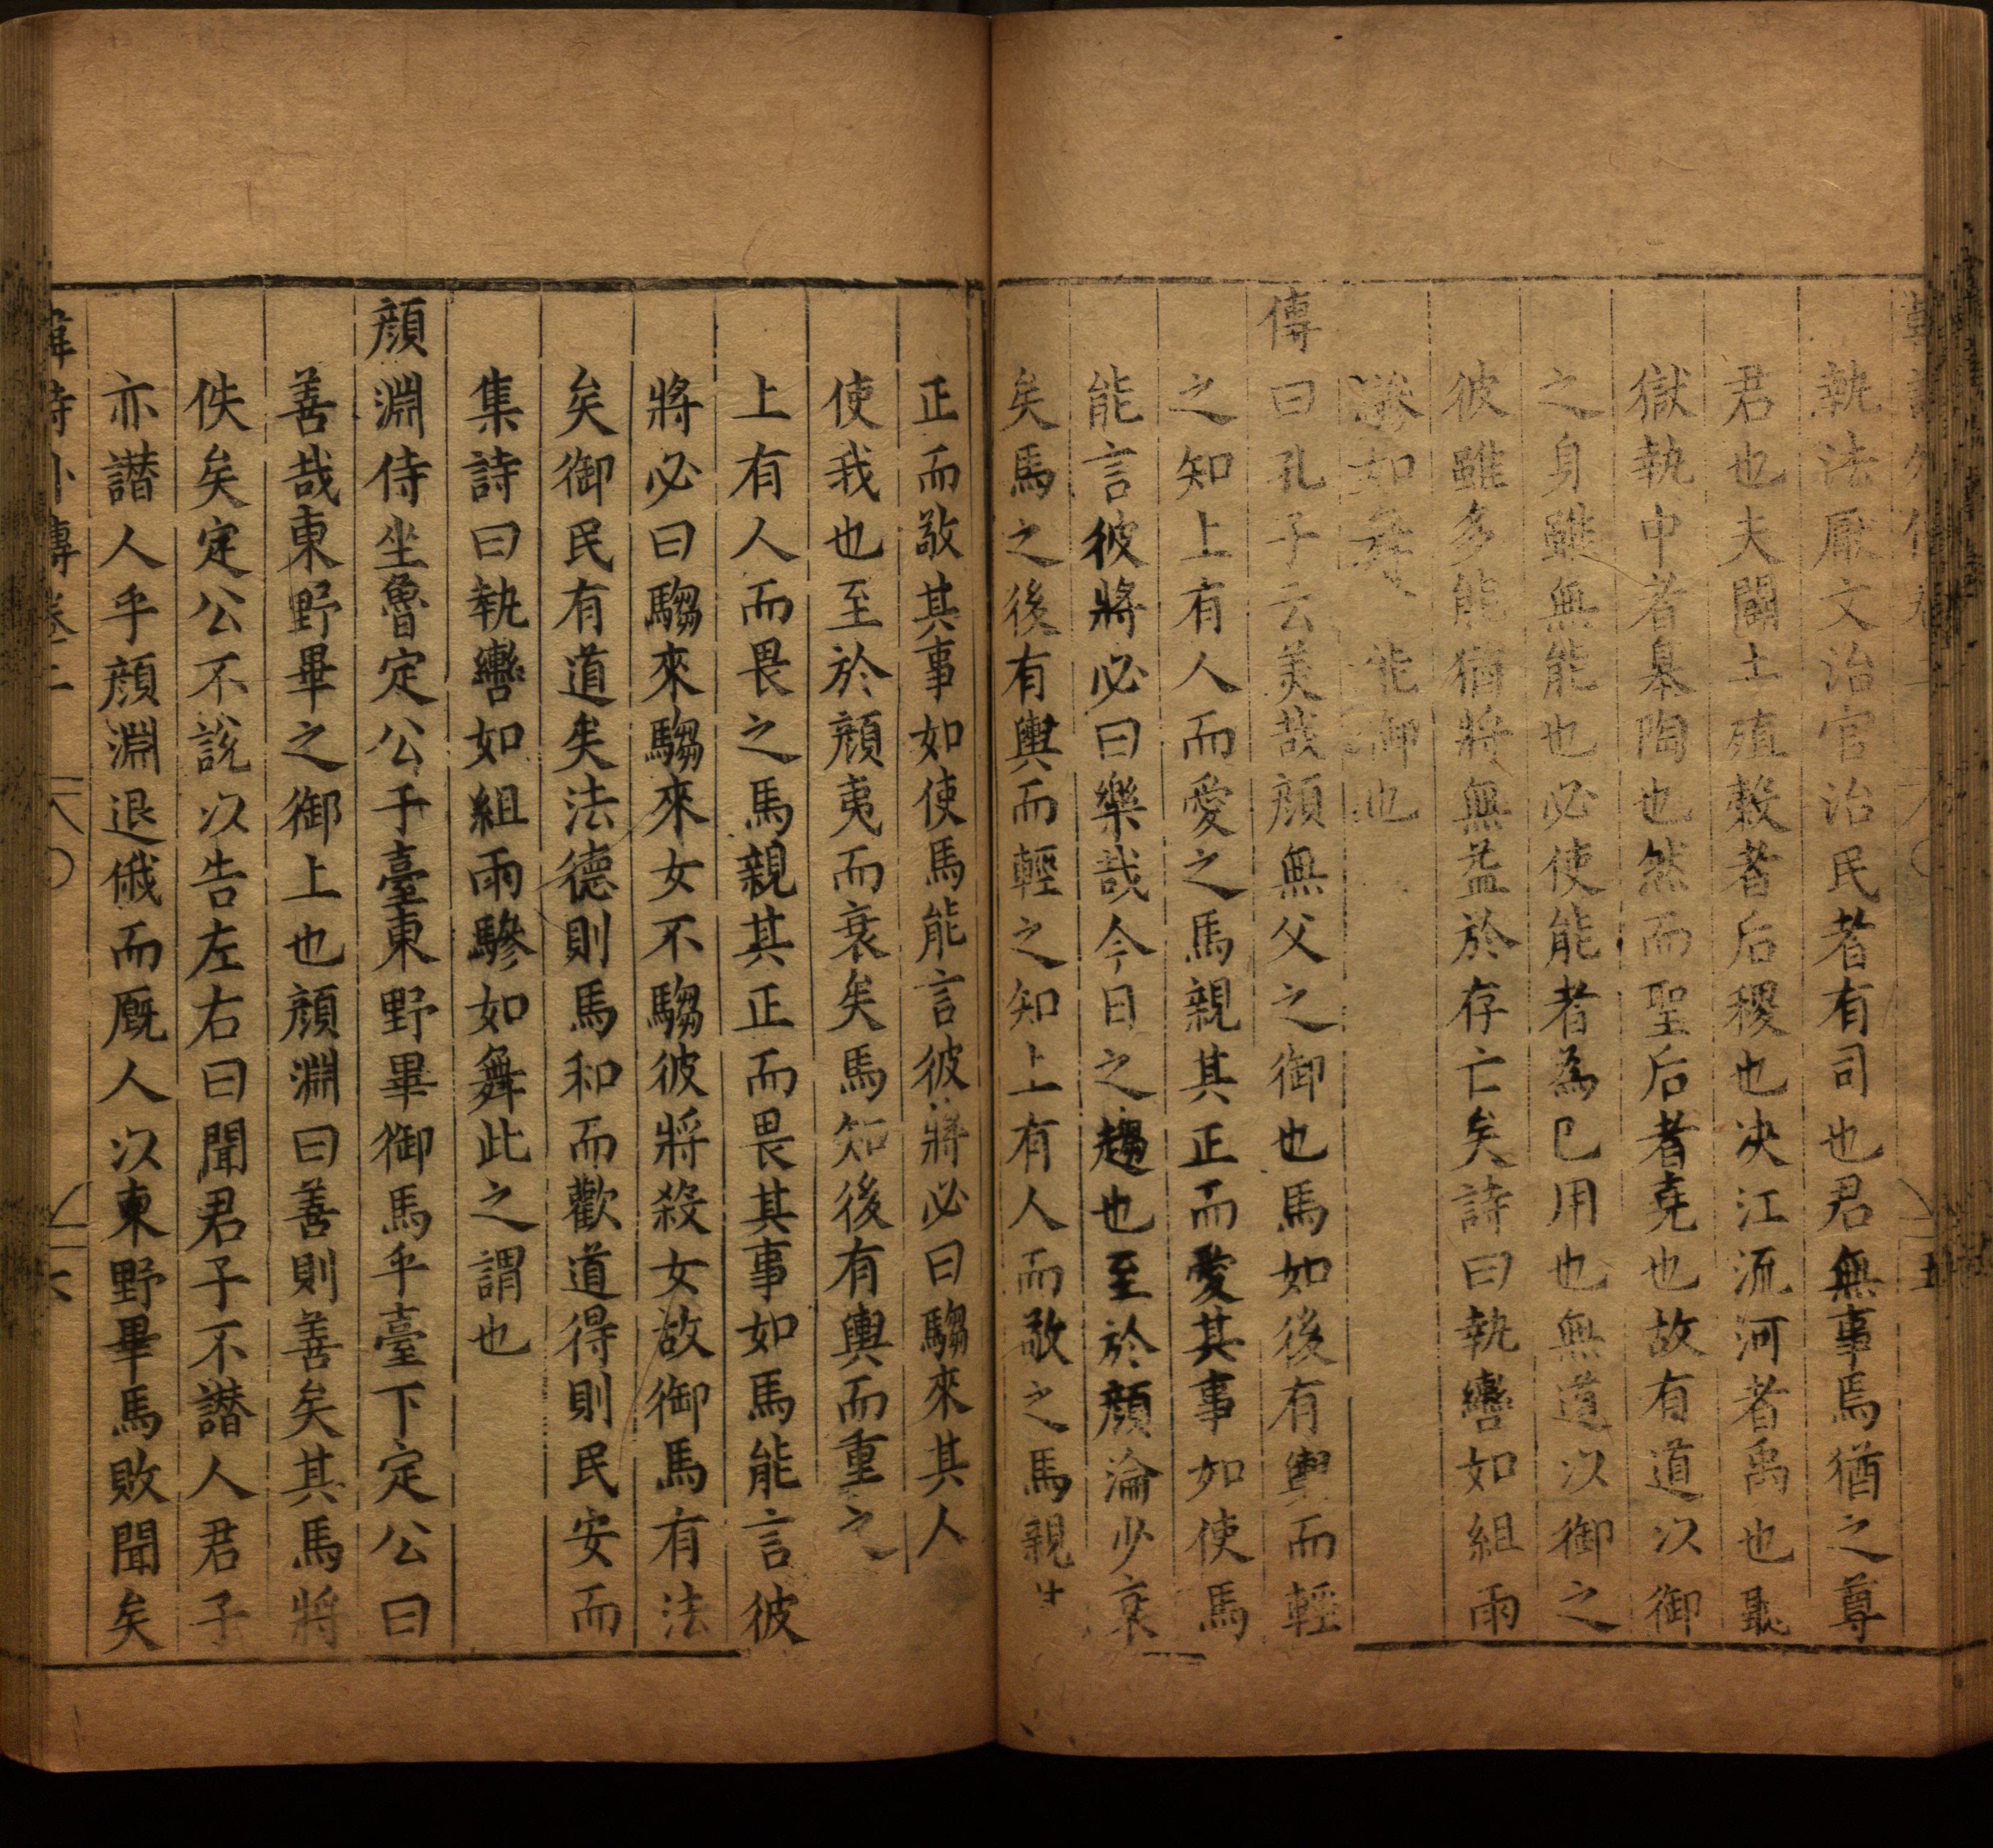 執法厭文治官治民者有司也君無事焉猶之尊
君也夫闢土殖穀者后稷也决江流河者禹也聽
獄執中者皋陶也然而聖后者堯也故有道以御
之身雖無能也必使能者為已用也無道以御之
彼雖多能猶將無益於存亡矣詩曰執轡如組兩
驂如舞 能御也
傳曰孔子云美哉顔無父之御也馬知後有輿而輕
之知上有人而愛之馬親其正而愛其事如使馬
能言彼將必曰樂哉今日之趨也至於顔淪少衰
矣馬之後有輿而輕之知上有人而敬之馬親
正而敬其事如使馬能言彼將必曰騶來其人
使我也至於顔夷而衰矣馬知後有輿而重之
上有人而畏之馬親其正而畏其事如馬能言彼
將必曰騶來騶來女不騶彼將殺女故御馬有法
矣御民有道矣法德則馬和而歡道得則民安而
集詩曰執轡如組兩驂如舞此之謂也
顔淵侍坐魯定公于臺東野畢御馬乎臺下定公曰
善哉東野畢之御上也顔淵曰善則善矣其馬將
佚矣定公不說以告左右曰聞君子不譖人君子
亦譖人乎顔淵退俄而厩人以東野畢馬敗聞矣
詩外傳卷二 六